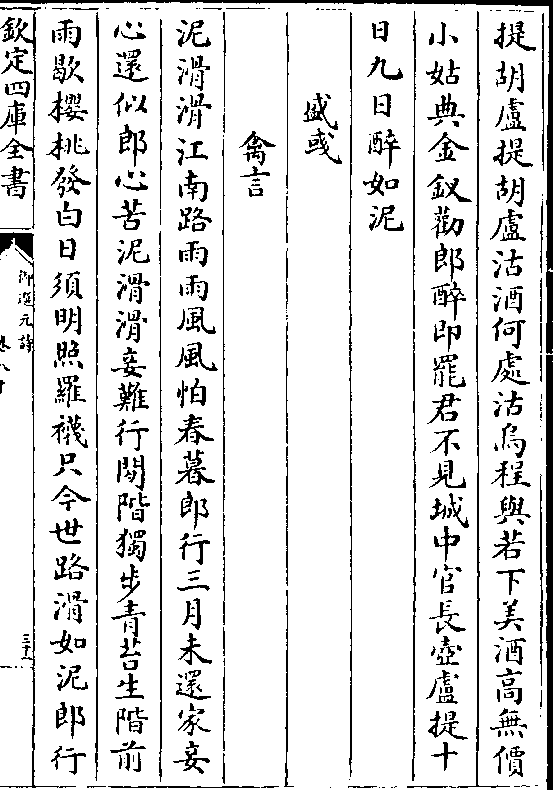 提胡盧提胡盧沽酒何處沽烏程與若下美酒髙無價
小姑典金釵勸郎醉即罷君不見城中官長壺盧提十
日九日醉如泥
盛彧
禽言
泥滑滑江南路雨雨風風怕春暮郎行三月未還家妾
心還似郎心苦泥滑滑妾難行閑階獨步青苔生階前
雨歇櫻桃發白日須明照羅襪只今世路滑如泥郎行
欽定四庫全書
御選元詩
卷八十
三十一